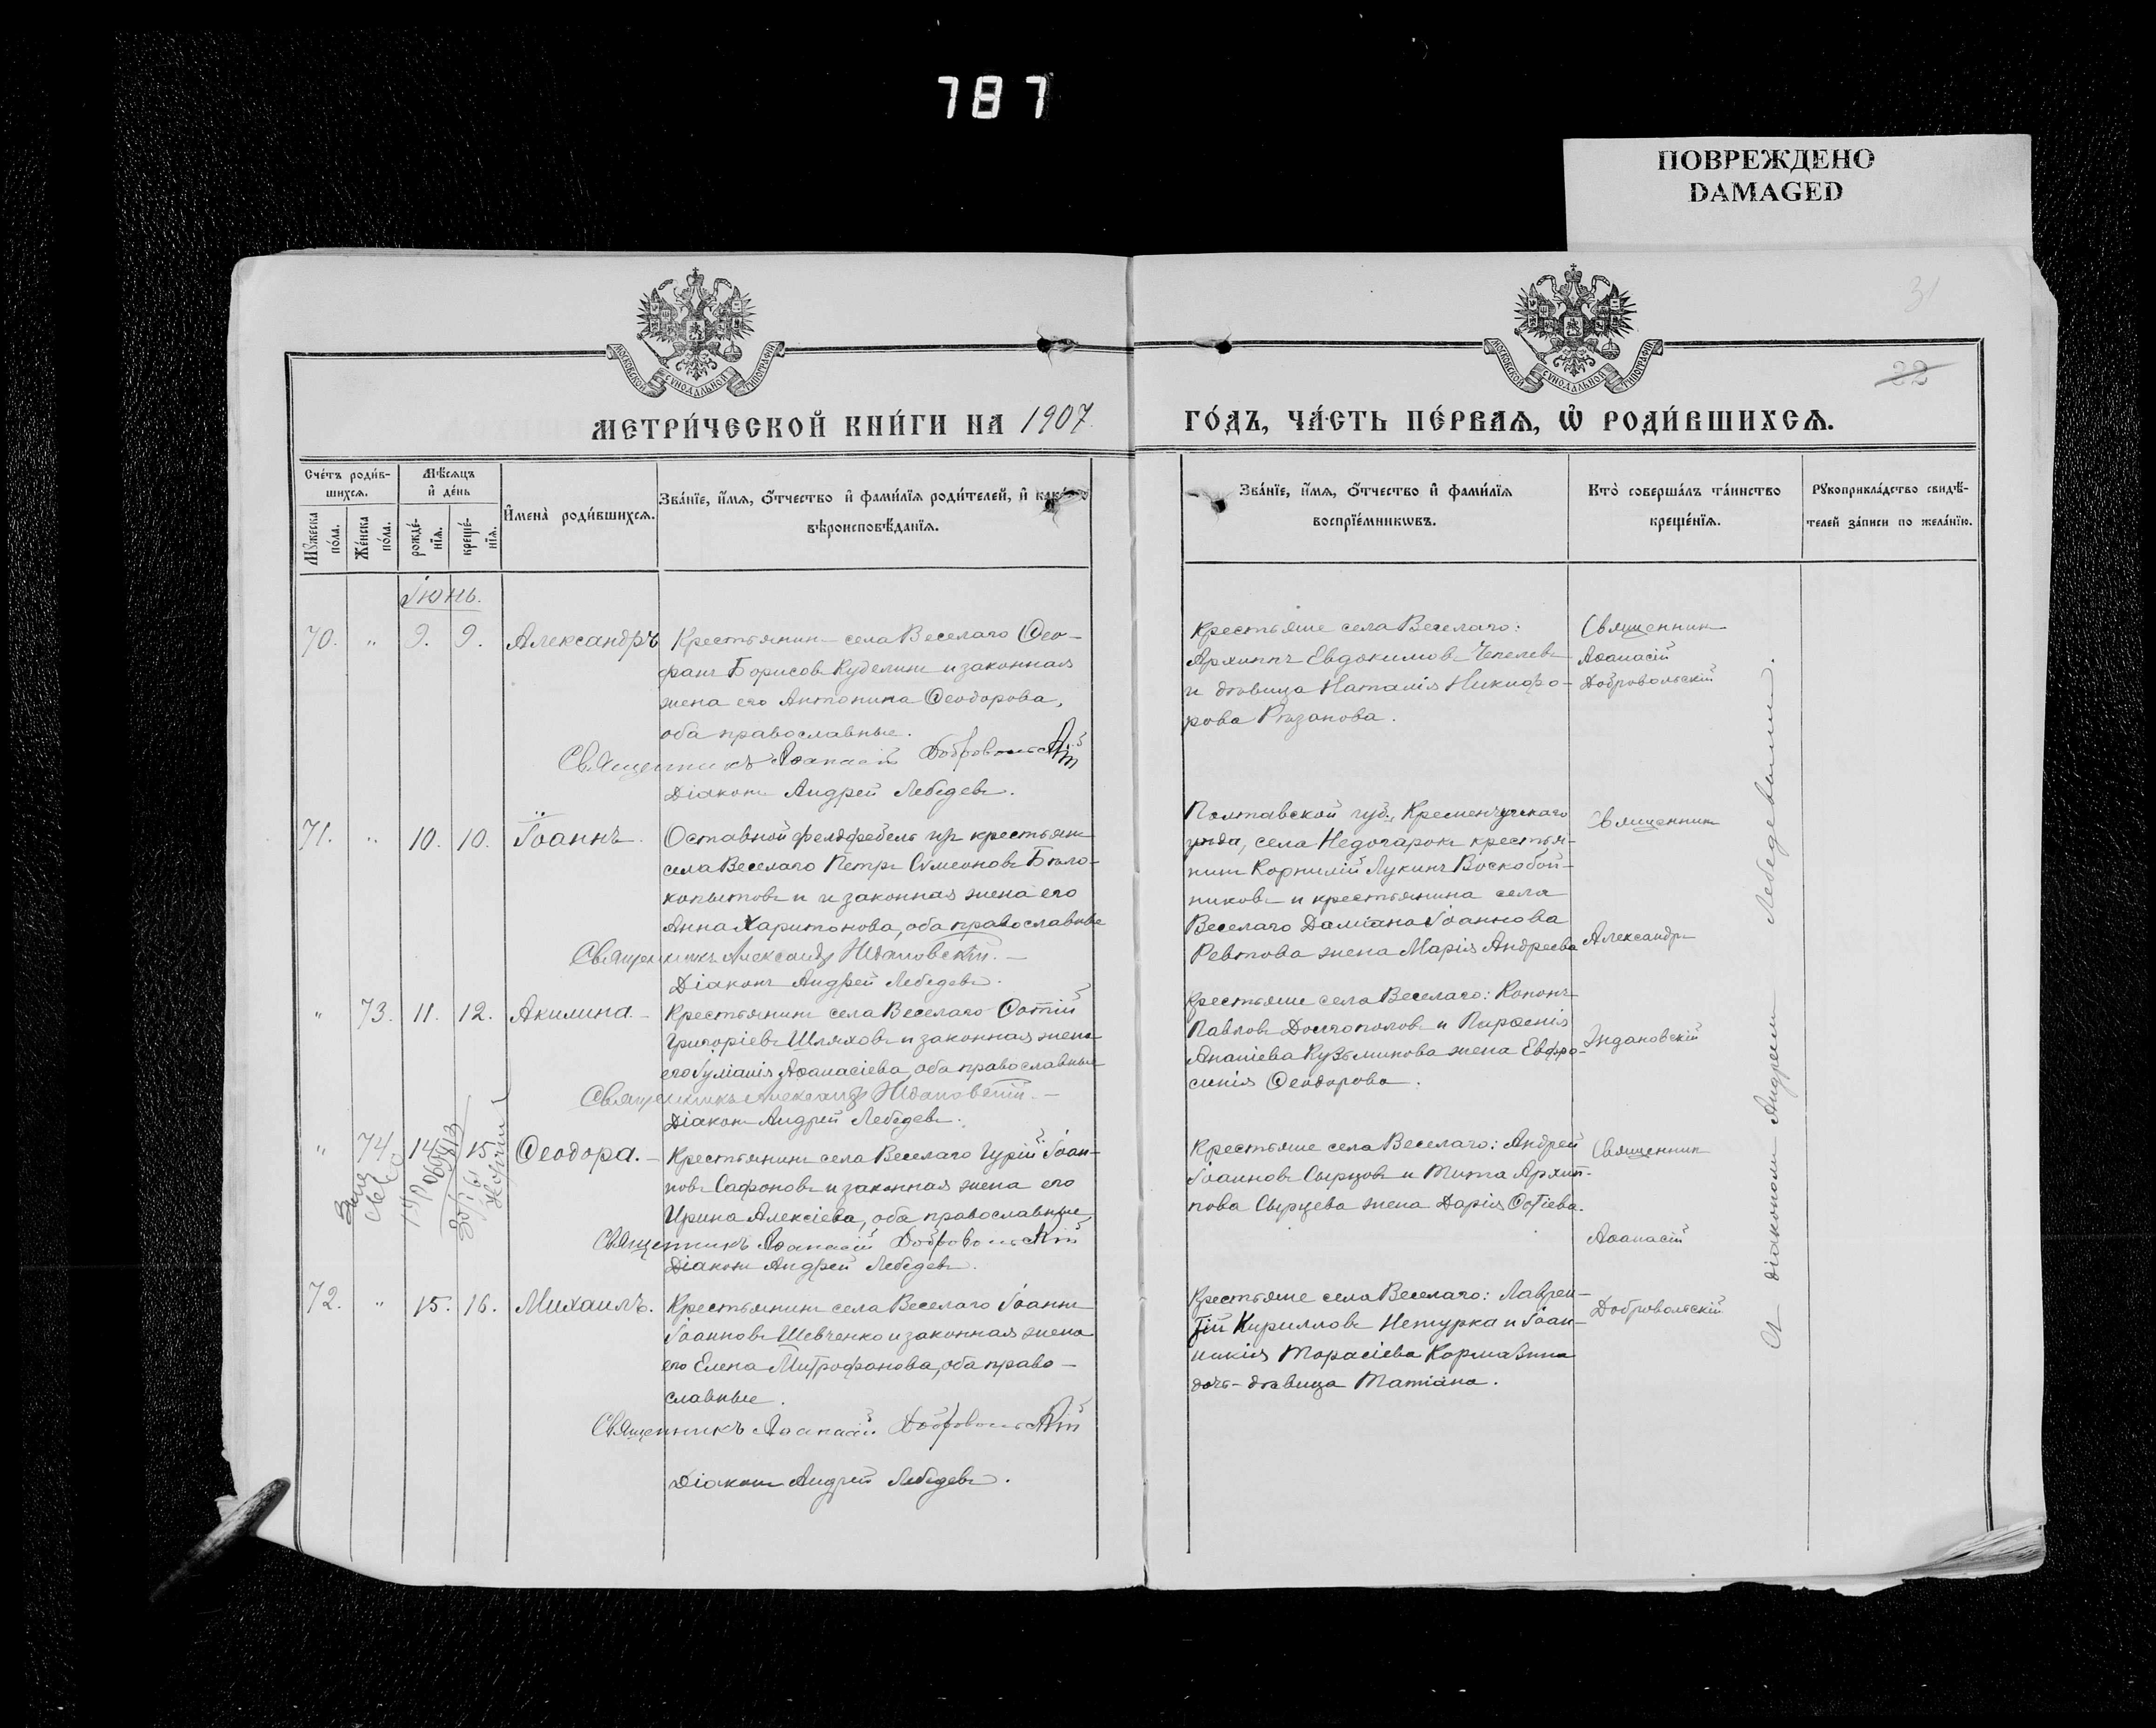 787
ПОВРЕЖДЕНО
DAMAGED
МОСКОВСКОЙ СУНОДАЛЬНОЙ ТИПОГРАФІИ
МОСКОВСКОЙ СУНОДАЛЬНОЙ ТИПОГРАФІИ
31
22
МЕТРИ́ЧЕСКОЙ КНИ́ГИ НА 1907.
ГО́ДЪ, ЧА́СТЬ ПЕ́РВАЯ, Ѡ҆ РОДИ́ВШИХСЯ.
Сче́тъ роди́в-
шихся.
Мꙋ́жеска по́ла.
Же́нска по́ла.
Мѣ́сяцъ
и҆ де́нь
рожде́-
нїя.
креще́-
нїя.
И҆мена̀ роди́вшихся.
Зва́нїе, и҆́мя, ѻ҆́тчество и҆ фами́лїя роди́телей, и҆ како́го
вѣроисповѣ́данїя.
Зва́нїе, и҆́мя, ѻ҆́тчество и҆ фами́лїя
воспрїе́мникѡвъ.
Кто̀ соверша́лъ та́инство
креще́нїя.
Рꙋкоприкла́дство свидѣ́-
телей за́писи по жела́нїю.
Іюнь.
70. " 9. 9. Александръ
Крестьянинъ села Веселаго Ѳео-
фанъ Борисовъ Куделинъ и законная
жена его Антонина Ѳеодорова,
оба православные.
Священникъ Аѳанасій Добровольскій
Діаконъ Андрей Лебедевъ.
Крестьяне села Веселаго:
Архиппъ Евдокимовъ Чепелевъ
и дѣвица Наталія Никифо-
рова Рязанова.
Священникъ
Аѳанасій
Добровольскій
71. " 10. 10. Іоаннъ.
Оставной фелдфебель изъ крестьянъ
села Веселаго Петръ Сѵмеоновъ Бѣло-
копытовъ и и законная жена его
Анна Харитонова, оба православные
Священникъ Александръ Ждановскій.
Діаконъ Андрей Лебедевъ.
Полтавской губ., Кременчугскаго
уѣзда, села Недогарокъ крестья-
нинъ Корнилій Лукинъ Воскобой-
никовъ и крестьянина села
Веселаго Даміана Іоаннова
Ревтова жена Марія Андреева
Священникъ
Александръ
Ждановскій
" 73. 11. 12. Акилина.
Крестьянинъ села Веселаго Фотій
Григоріевъ Шляховъ и законная жена
его Іуліанія Аѳанасіева, оба православные
Священникъ Александръ Ждановскій.
Діаконъ Андрей Лебедевъ.
Крестьяне села Веселаго: Кононъ
Павловъ Долгополовъ и Парѳенія
Ананіева Кузьминова жена Евфро-
синія Ѳеодорова.
" 74. 14. 15. Ѳеодора.
Крестьянинъ села Веселаго Гурій Іоан-
новъ Сафоновъ и законная жена его
Ирина Алексіева, оба православные
Священникъ Аѳанасій Добровольскій
Діаконъ Андрей Лебедевъ.
Крестьяне села Веселаго: Андрей
Іоанновъ Сырцовъ и Тита Архип-
пова Сырцева жена Дарія Фотіева.
Священникъ
Аѳанасій
Добровольскій
72. " 15. 16. Михаилъ.
Крестьянинъ села Веселаго Іоаннъ
Іоанновъ Шевченко и законная жена
его Елена Митрофанова, оба право-
славные.
Священникъ Аѳанасій Добровольскій
Діаконъ Андрей Лебедевъ.
Крестьяне села Веселаго: Лаврен-
тій Кирилловъ Нетурка и Іоан-
никія Тарасіева Кормазина
дочь-дѣвица Татіана.
Съ діакономъ Андреемъ Лебедевымъ.